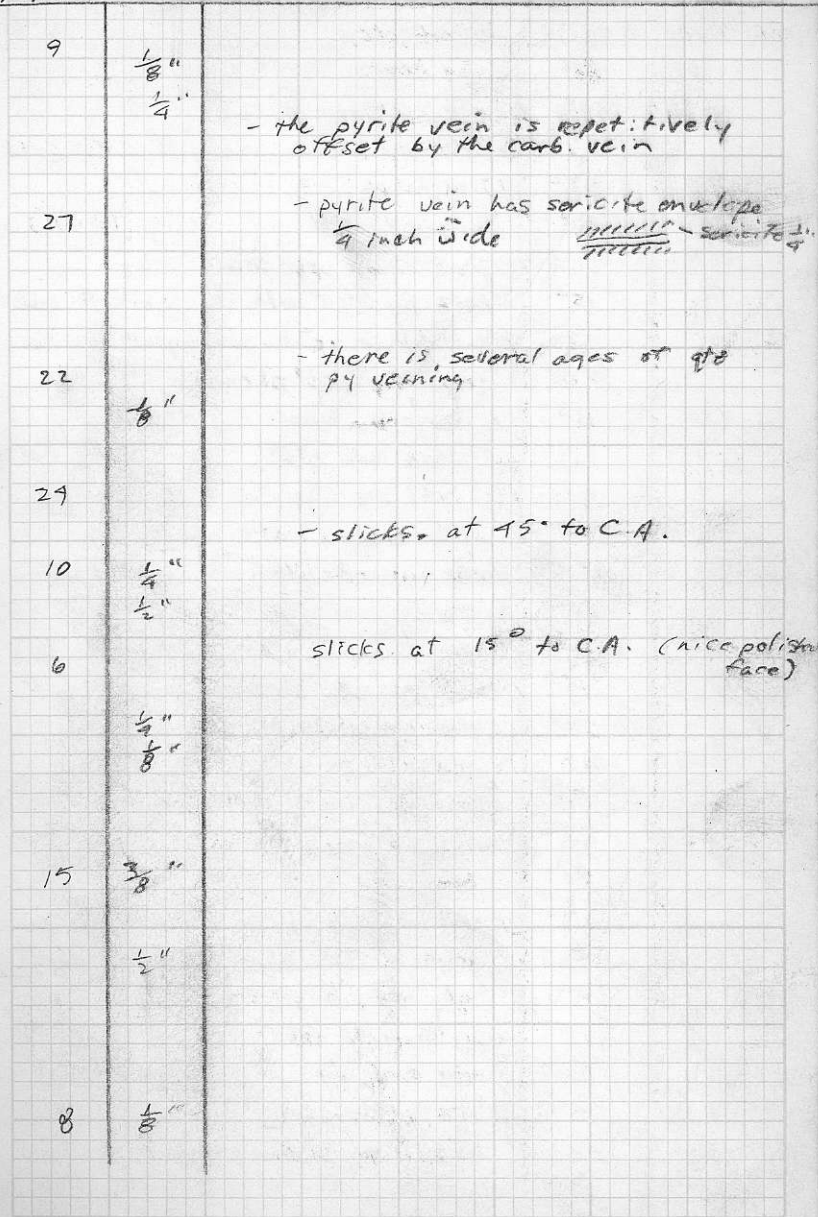 9
1/8 "
1/4 "
- the pyrite vein is repetitively
offset by the carb. vein
- pyrite vein has sericite envelope
27
1/4 inch wide sericite 1/4"
- there is several ages of qtz
22 py veining
1/8 "
24
- slicks. at 45° to C.A.
10 1/4 "
1/2 "
6 slicks at 15° to C.A. (nice polished
face)
1/8 "
15 3/8 "
1/2 "
8 1/8 "